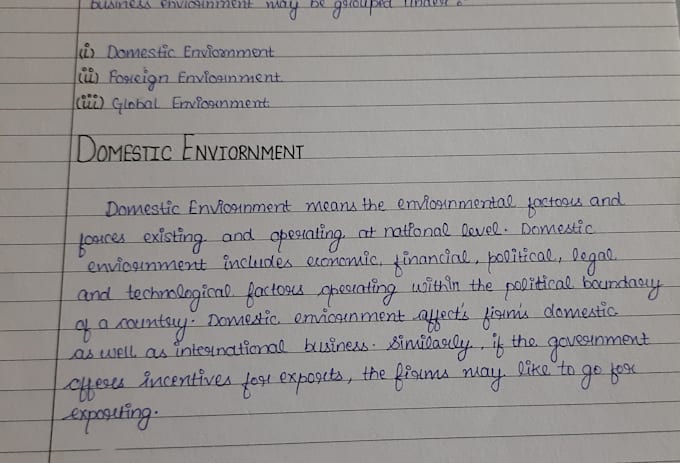 business enviornment may be grouped under:
(i) Domestic Enviornment
(ii) Foreign Enviornment
(iii) Global Enviornment
DOMESTIC ENVIORNMENT
Domestic Enviornment means the enviornmental factors and
forces existing and operating at national level. Domestic
enviornment includes economic, financial, political, legal
and technological factors operating within the political boundary
of a country. Domestic enviornment affect's firm's domestic
as well as international business. Similarly, if the government
offers incentives for exports, the firms may like to go for
exporting.